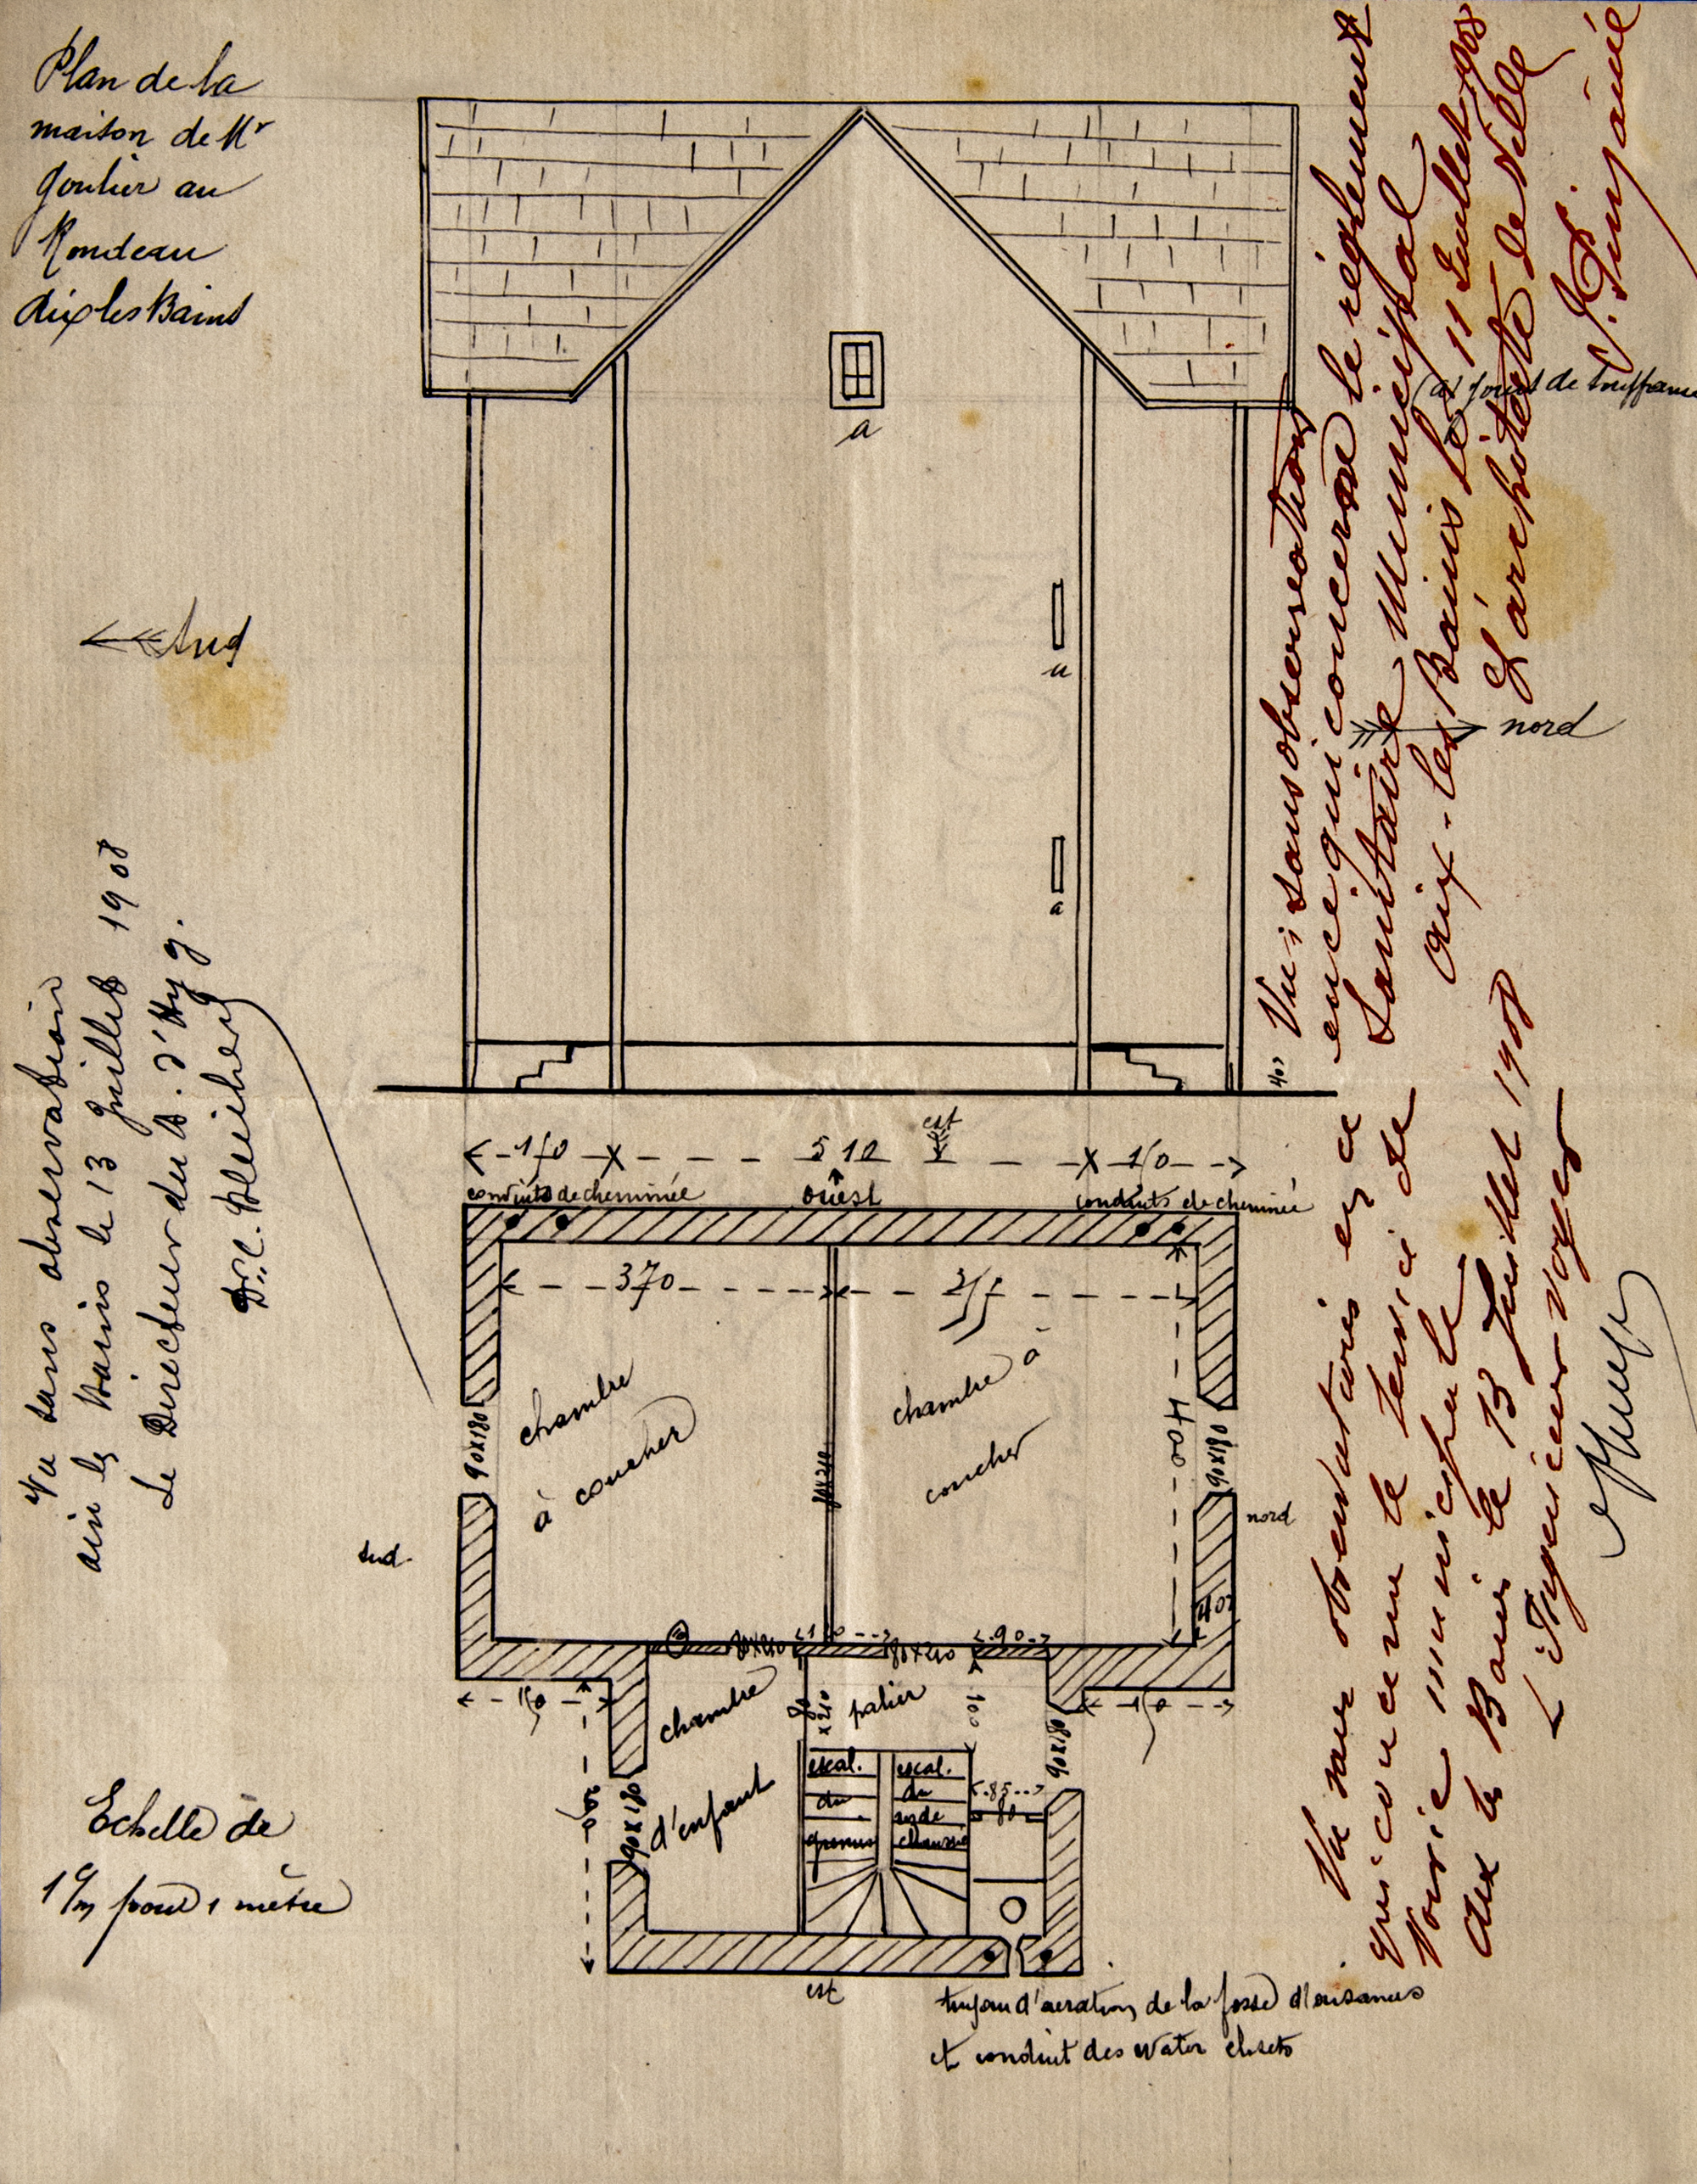 Plan de la
maison de Mr
Goulier au
Rondeau
Aix les Bains
a
(a) jours de souffrance
a
a
Sud
nord
Vu sans observation
aix les Bains le 13 Juillet 1908
Le Directeur du B. d'Hyg.
Dr. C.
Vu sans observations
en ce qui concerne le règlement
Sanitaire Municipal
Aix-les Bains le 11 Juillet 908
L'architecte de Ville
40
150 510 150
est
conduits de cheminée
ouest
conduits de cheminée
370
chambre
à coucher
chambre à
coucher
400
90x180
90x180
sud
nord
40
80x210
80x210
90
150
150
chambre
d'enfant
80
x210
palier
100
90x180
90x180
escal.
du
grenier
escal.
du
rez de
chaussée
85
80
est
tuyau d'aeration de la fosse d'aisances
et conduit des water closets
Echelle de
1 c/m pour 1 mètre
Vu sans observations en ce
qui concerne le service de
Voirie municipale
Aix les Bains le 13 Juillet 1908
L'Ingénieur Voyer